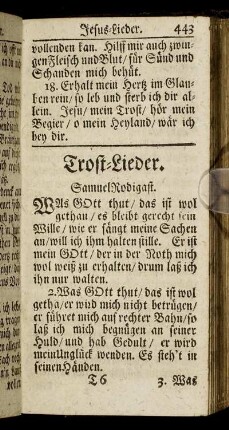 Jesus-Lieder. 443
vollenden kan. Hilff mir auch zwin-
gen Fleisch und Blut/ für Sünd und
Schanden mich behüt.
18. Erhalt mein Hertz im Glau-
ben rein/ so leb und sterb ich dir al-
lein. Jesu/ mein Trost/ hör mein
Begier/ o mein Heyland/ wär ich
bey dir.
Trost-Lieder.
Samuel Rodigast.
WAs GOtt thut/ das ist wol
gethan/ es bleibt gerecht sein
Wille/ wie er fängt meine Sachen
an/ will ich ihm halten stille. Er ist
mein GOtt/ der in der Noth mich
wol weiß zu erhalten/ drum laß ich
ihn nur walten.
2. Was GOtt thut/ das ist wol
getha/ er wird mich nicht betrügen/
er führet mich auf rechter Bahn/ so
laß ich mich begnügen an seiner
Huld/ und hab Gedult/ er wird
mein Unglück wenden. Es steh't in
seinen Händen.
T 6 3. Was